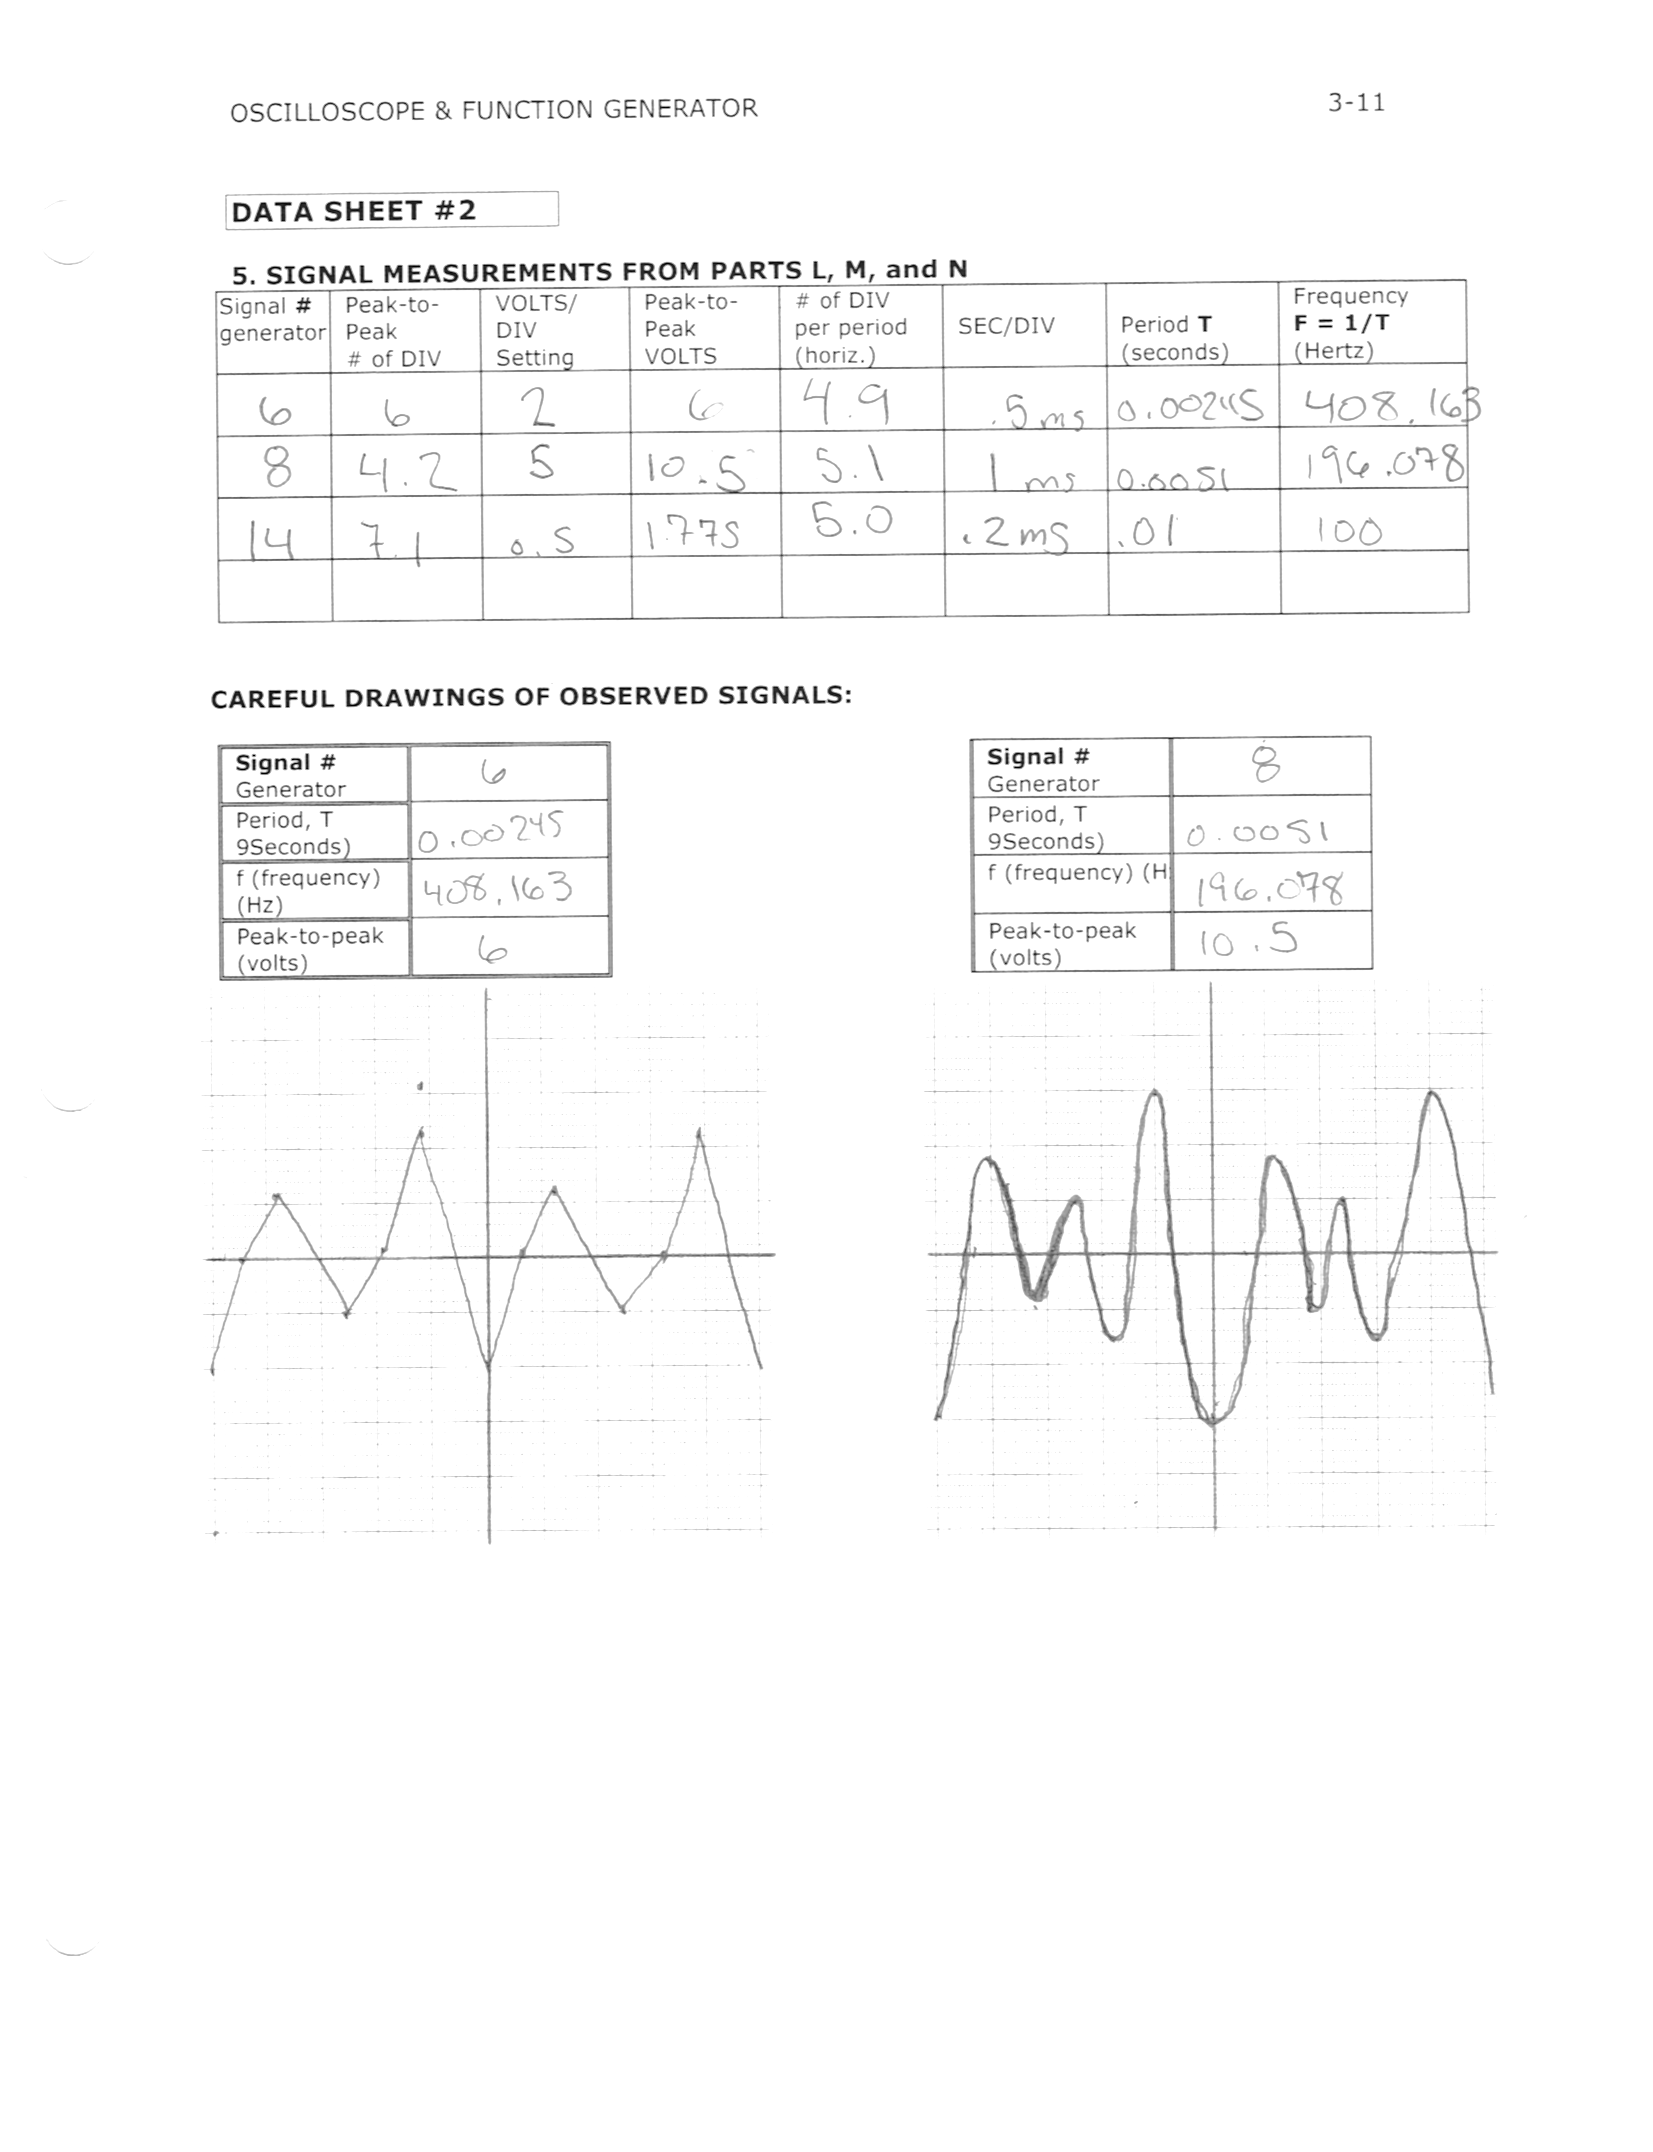 OSCILLOSCOPE & FUNCTION GENERATOR 3-11
DATA SHEET #2
5. SIGNAL MEASUREMENTS FROM PARTS L, M, and N
Signal # generator Peak-to-Peak # of DIV VOLTS/ DIV Setting Peak-to-Peak VOLTS # of DIV per period (horiz.) SEC/DIV Period T (seconds) Frequency F = 1/T (Hertz)
6 6 2 6 4.9 .5ms 0.00245 408.163
8 4.2 5 10.5 5.1 1ms 0.0051 196.078
14 7.1 0.5 1.775 5.0 .2ms .01 100
CAREFUL DRAWINGS OF OBSERVED SIGNALS:
Signal #
Generator 6
Period, T
9Seconds) 0.00245
f (frequency)
(Hz) 408.163
Peak-to-peak
(volts) 6
Signal #
Generator 8
Period, T
9Seconds) 0.0051
f (frequency) (H 196.078
Peak-to-peak
(volts) 10.5